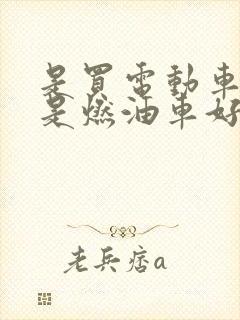 是買電動車
是燃油車好
老兵痞a